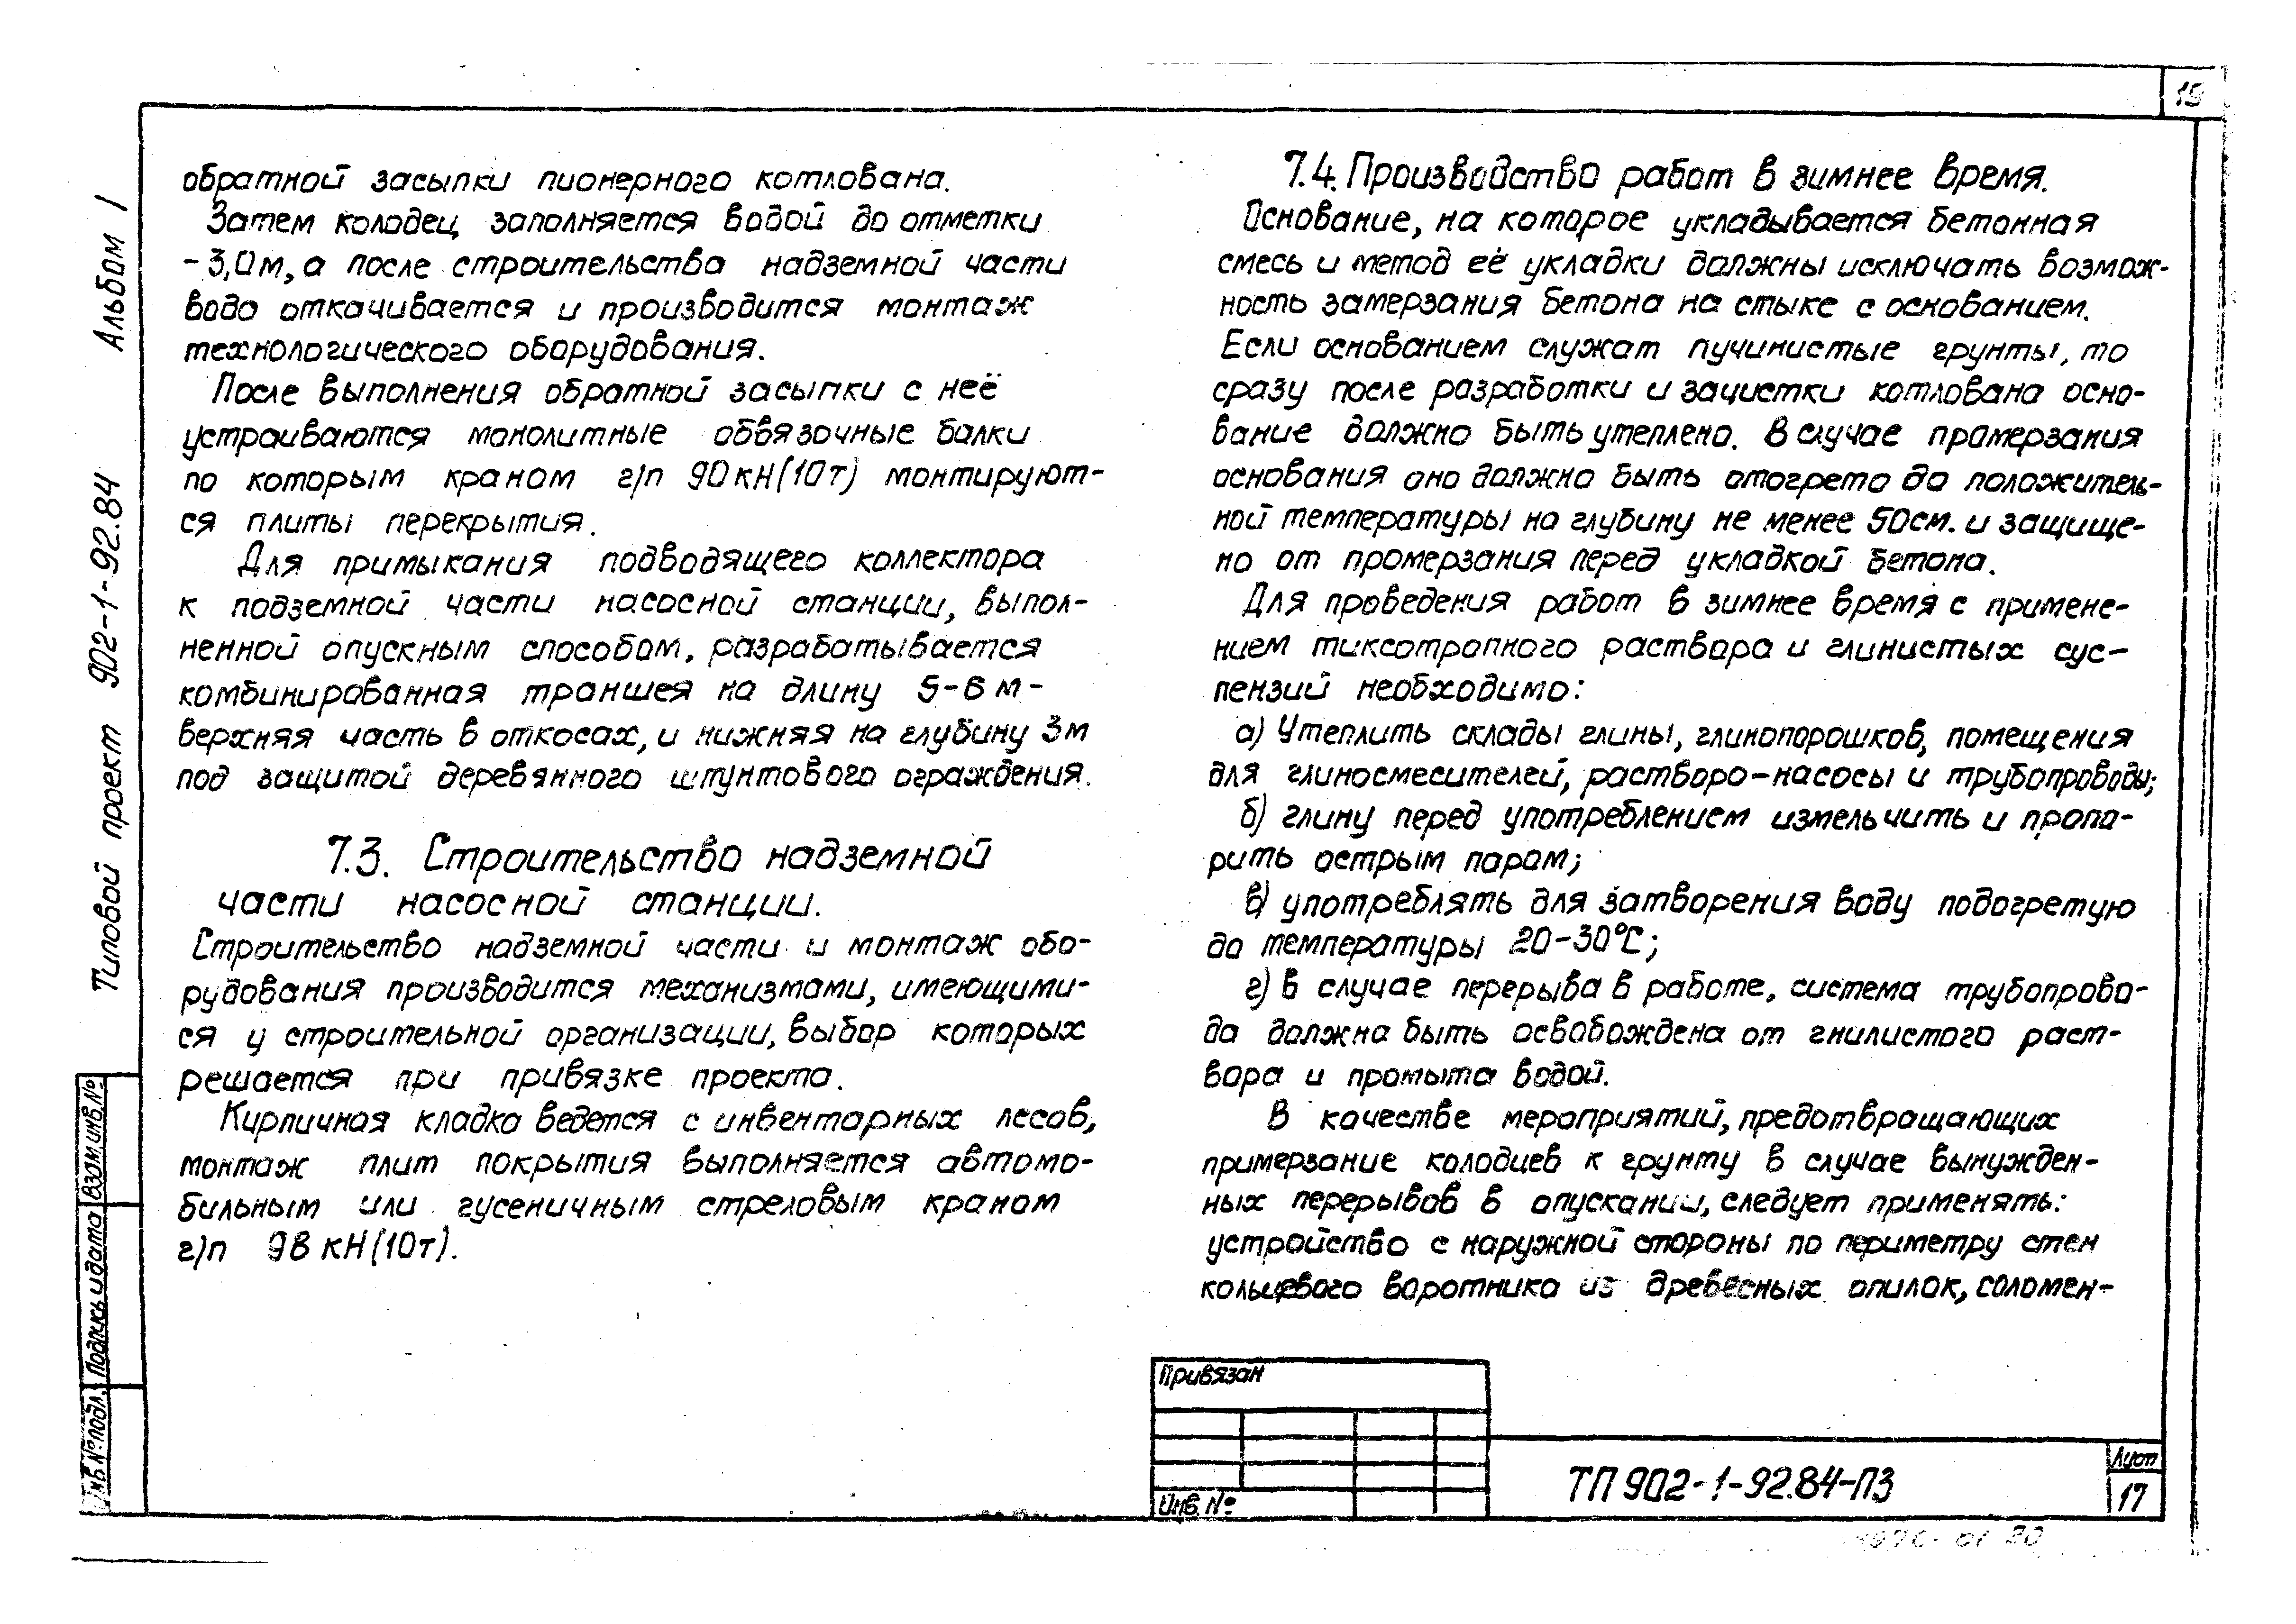 19
Альбом I
Типовой проект 902-1-92.84
обратной засыпки пионерного котлована.
Затем колодец заполняется водой до отметки
-3,0м, а после строительства надземной части
вода откачивается и производится монтаж
технологического оборудования.
После выполнения обратной засыпки с неё
устраиваются монолитные обвязочные балки
по которым краном г/п 90кН(10т) монтируют-
ся плиты перекрытия.
Для примыкания подводящего коллектора
к подземной части насосной станции, выпол-
ненной опускным способом, разрабатывается
комбинированная траншея на длину 5-6м-
верхняя часть в откосах, и нижняя на глубину 3м
под защитой деревянного шпунтового ограждения.
7.3. Строительство надземной
части насосной станции.
Строительство надземной части и монтаж обо-
рудования производится механизмами, имеющими-
ся у строительной организации, выбор которых
решается при привязке проекта.
Кирпичная кладка ведется с инвентарных лесов,
монтаж плит покрытия выполняется автомо-
бильным или гусеничным стреловым краном
г/п 98 кН(10т).
7.4. Производство работ в зимнее время.
Основание, на которое укладывается бетонная
смесь и метод её укладки должны исключать возмож-
ность замерзания бетона на стыке с основанием.
Если основанием служат пучинистые грунты, то
сразу после разработки и зачистки котлована осно-
вание должно быть утеплено. В случае промерзания
основания оно должно быть отогрето до положитель-
ной температуры на глубину не менее 50см. и защище-
но от промерзания перед укладкой бетона.
Для проведения работ в зимнее время с примене-
нием тиксотропного раствора и глинистых сус-
пензий необходимо:
а) Утеплить склады глины, глинопорошков, помещения
для глиносмесителей, растворо-насосы и трубопроводы;
б) глину перед употреблением измельчить и пропа-
рить острым паром;
в) употреблять для затворения воду подогретую
до температуры 20-30°С;
г) в случае перерыва в работе, система трубопрово-
да должна быть освобождена от гнилистого раст-
вора и промыта водой.
В качестве мероприятий, предотвращающих
примерзание колодцев к грунту в случае вынужден-
ных перерывов в опускании, следует применять:
устройство с наружной стороны по периметру стен
кольцевого воротника из древесных опилок, соломен-
Взам. инв. №
Подпись и дата
Инв № подл.
Привязан
Инв. №
ТП 902-1-92.84-ПЗ
Лист
17